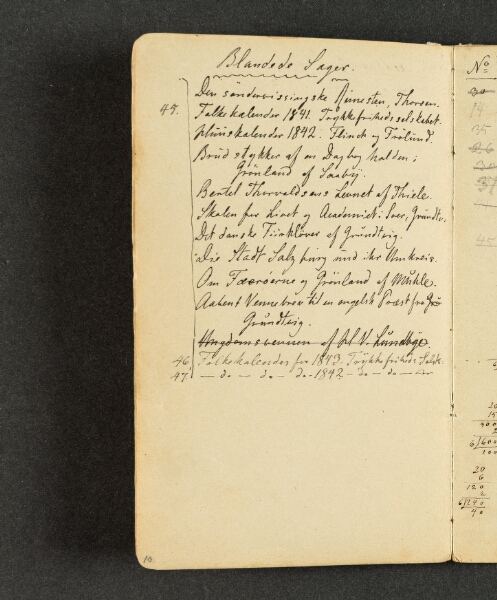 Blandede Sager.
Den søndervissingske Runesten, Thorsen.
45. Folkekalender 1841. Trykkefrihedsselskabet.
1842. Flinch og Frølund.
Brudstykker af en Dagbog holden i
Grønland af Saaby.
Bertel Thorvaldsens Levnet af Thiele.
Skolen for Livet og Academiet i Soer, Grundtv.
Det danske Fiirkløver af Grundtvig.
Die Stadt Salzburg und ihr Umkreis.
Om Færøerne og Grønland af
Aabent Vennebrev til en engelsk Præst fra Gr
Grundtvig.
Ungdomsvennen af V. Lundbye
46. Folkekalender for 1843. Trykkefriheds Selsk.
47. — do — do — do 1842 — do — do —
10
No
30
14
35
45
20
6
120
6/240
40